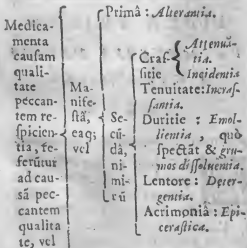 Medica-
menta
cauſam
quali-
tate
peccan-
tem re-
ſpicien-
tia, fe-
ferūtur
ad cau-
sā pec-
cantem
qualita
te, vel
Ma-
nife-
ſtâ,
eaq;
vel
Primâ : Alterantia.
Se-
cū-
dâ,
ni-
mi-
rū
Craſ-
ſitie
Attenuā-
tia.
Incidentia
Tenuitate: Incraſ-
ſantia.
Duritie : Emol-
lientia , quò
ſpectāt & gru-
mos diſſoluentia.
Lentore : Deter-
gentia.
Acrimoniâ : Epi-
ceraſtica.